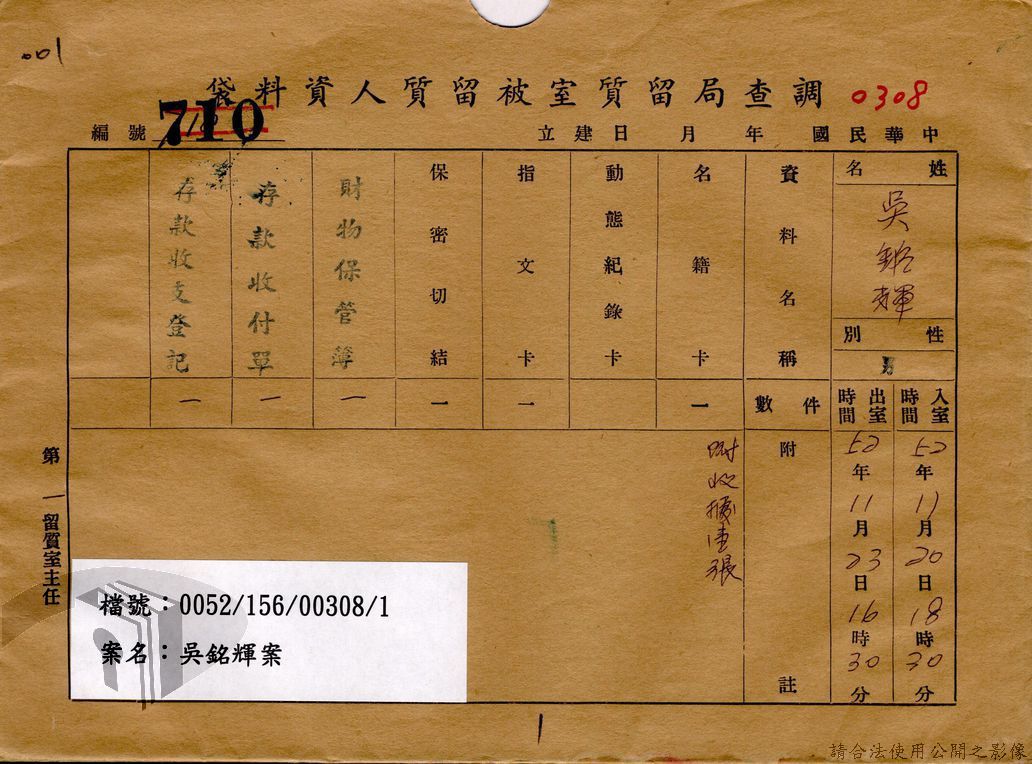 001
調查局留質室被留質人資料袋
0308
中華民國 年 月 日建立
編號 710
姓名
吳銘輝
性別
男
入室時間
52年11月20日18時30分
出室時間
52年11月23日16時30分
資料名稱
件數
名籍卡
一
動態紀錄卡
指文卡
一
保密切結
一
財物保管簿
一
存款收付單
一
存款收支登記
一
附註
附收據壹張
第一留質室主任
檔號:0052/156/00308/1
案名:吳銘輝案
1
請合法使用公開之影像